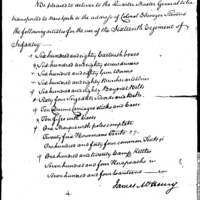 Be pleased to deliver to the Quarter Master General to be
transported to to the address of Colonel Ebenezer Stevens
the following articles for the use of the Sixteenth Regiment of
Infantry
Six hundred and eighty Cartouch boxes
Six hundred and eighty screw drivers
Six hundred and eighty
Six hundred and eighty Brushes and
Six hundred and eighty Bayonet Belts
Sixty four Sergeants Swords and Belts
Ten Drums carriages sticks and cases
Ten Fifes with cases
One complete
Twenty four Horsemans Tents
One hundred and forty four common Tents
One hundred and twenty Camp Kettles
Seven hundred and four Knapsacks
Seven hundred and four Canteens
James McHenry